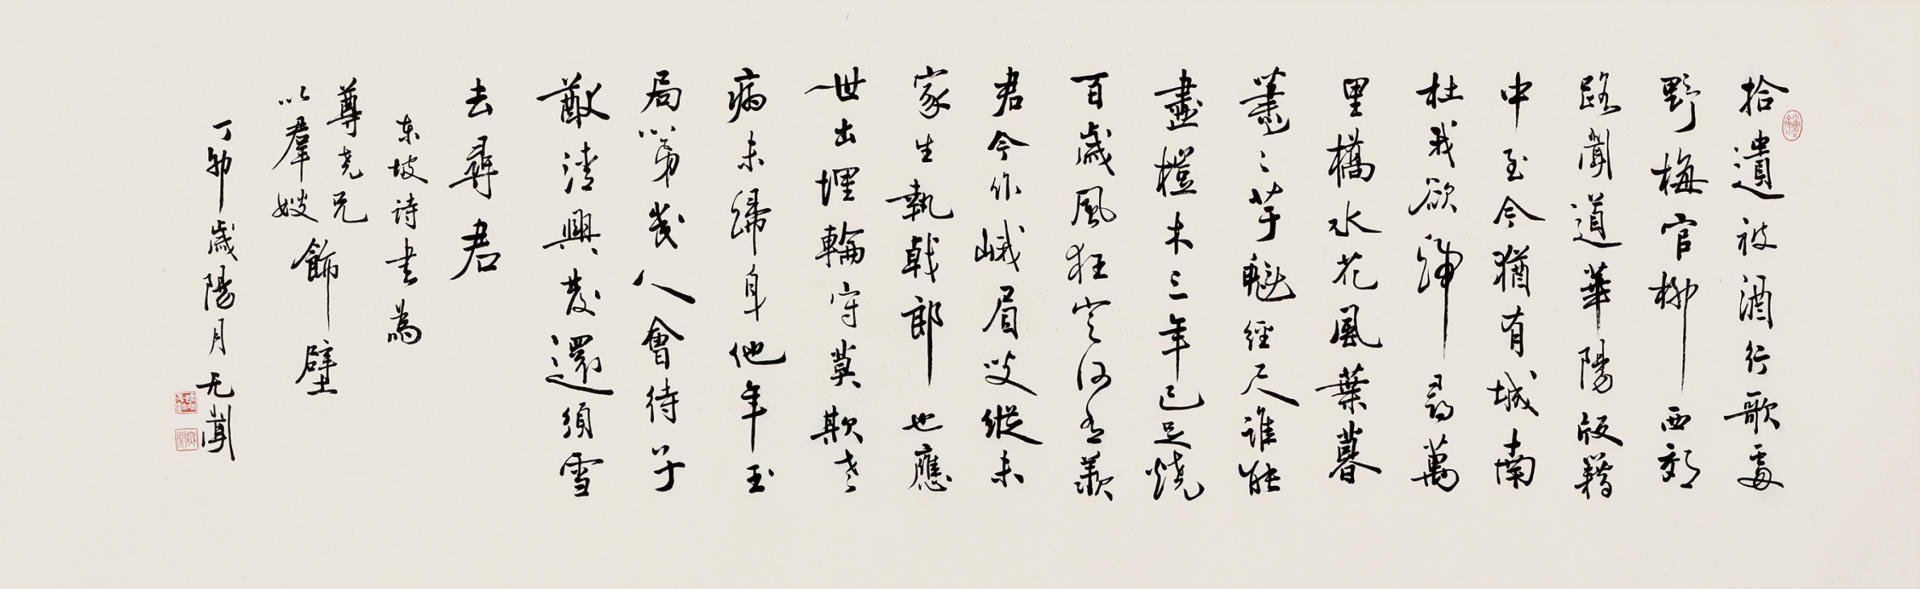 拾遺被酒行歌處
野梅官柳西郊
路聞道華陽版籍
中至今猶有城南
杜我欲歸尋萬
里橋水花風葉暮
蕭〻芋魁經尺誰能
盡榿木三年已足燒
百歲風狂定何有羨
君今作峨眉叟縱未
家生執戟郎也應
世出埋輪守莫欺老
病未歸身他年玉
局第幾人會待子
猷清興發還須雪
去尋君
东坡诗書為
尊堯兄
以羣嫂
飾壁
丁卯歲陽月无聞